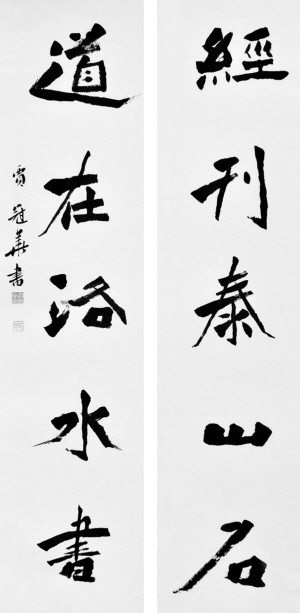 經刊泰山石
道在洛水書
賈冠華書